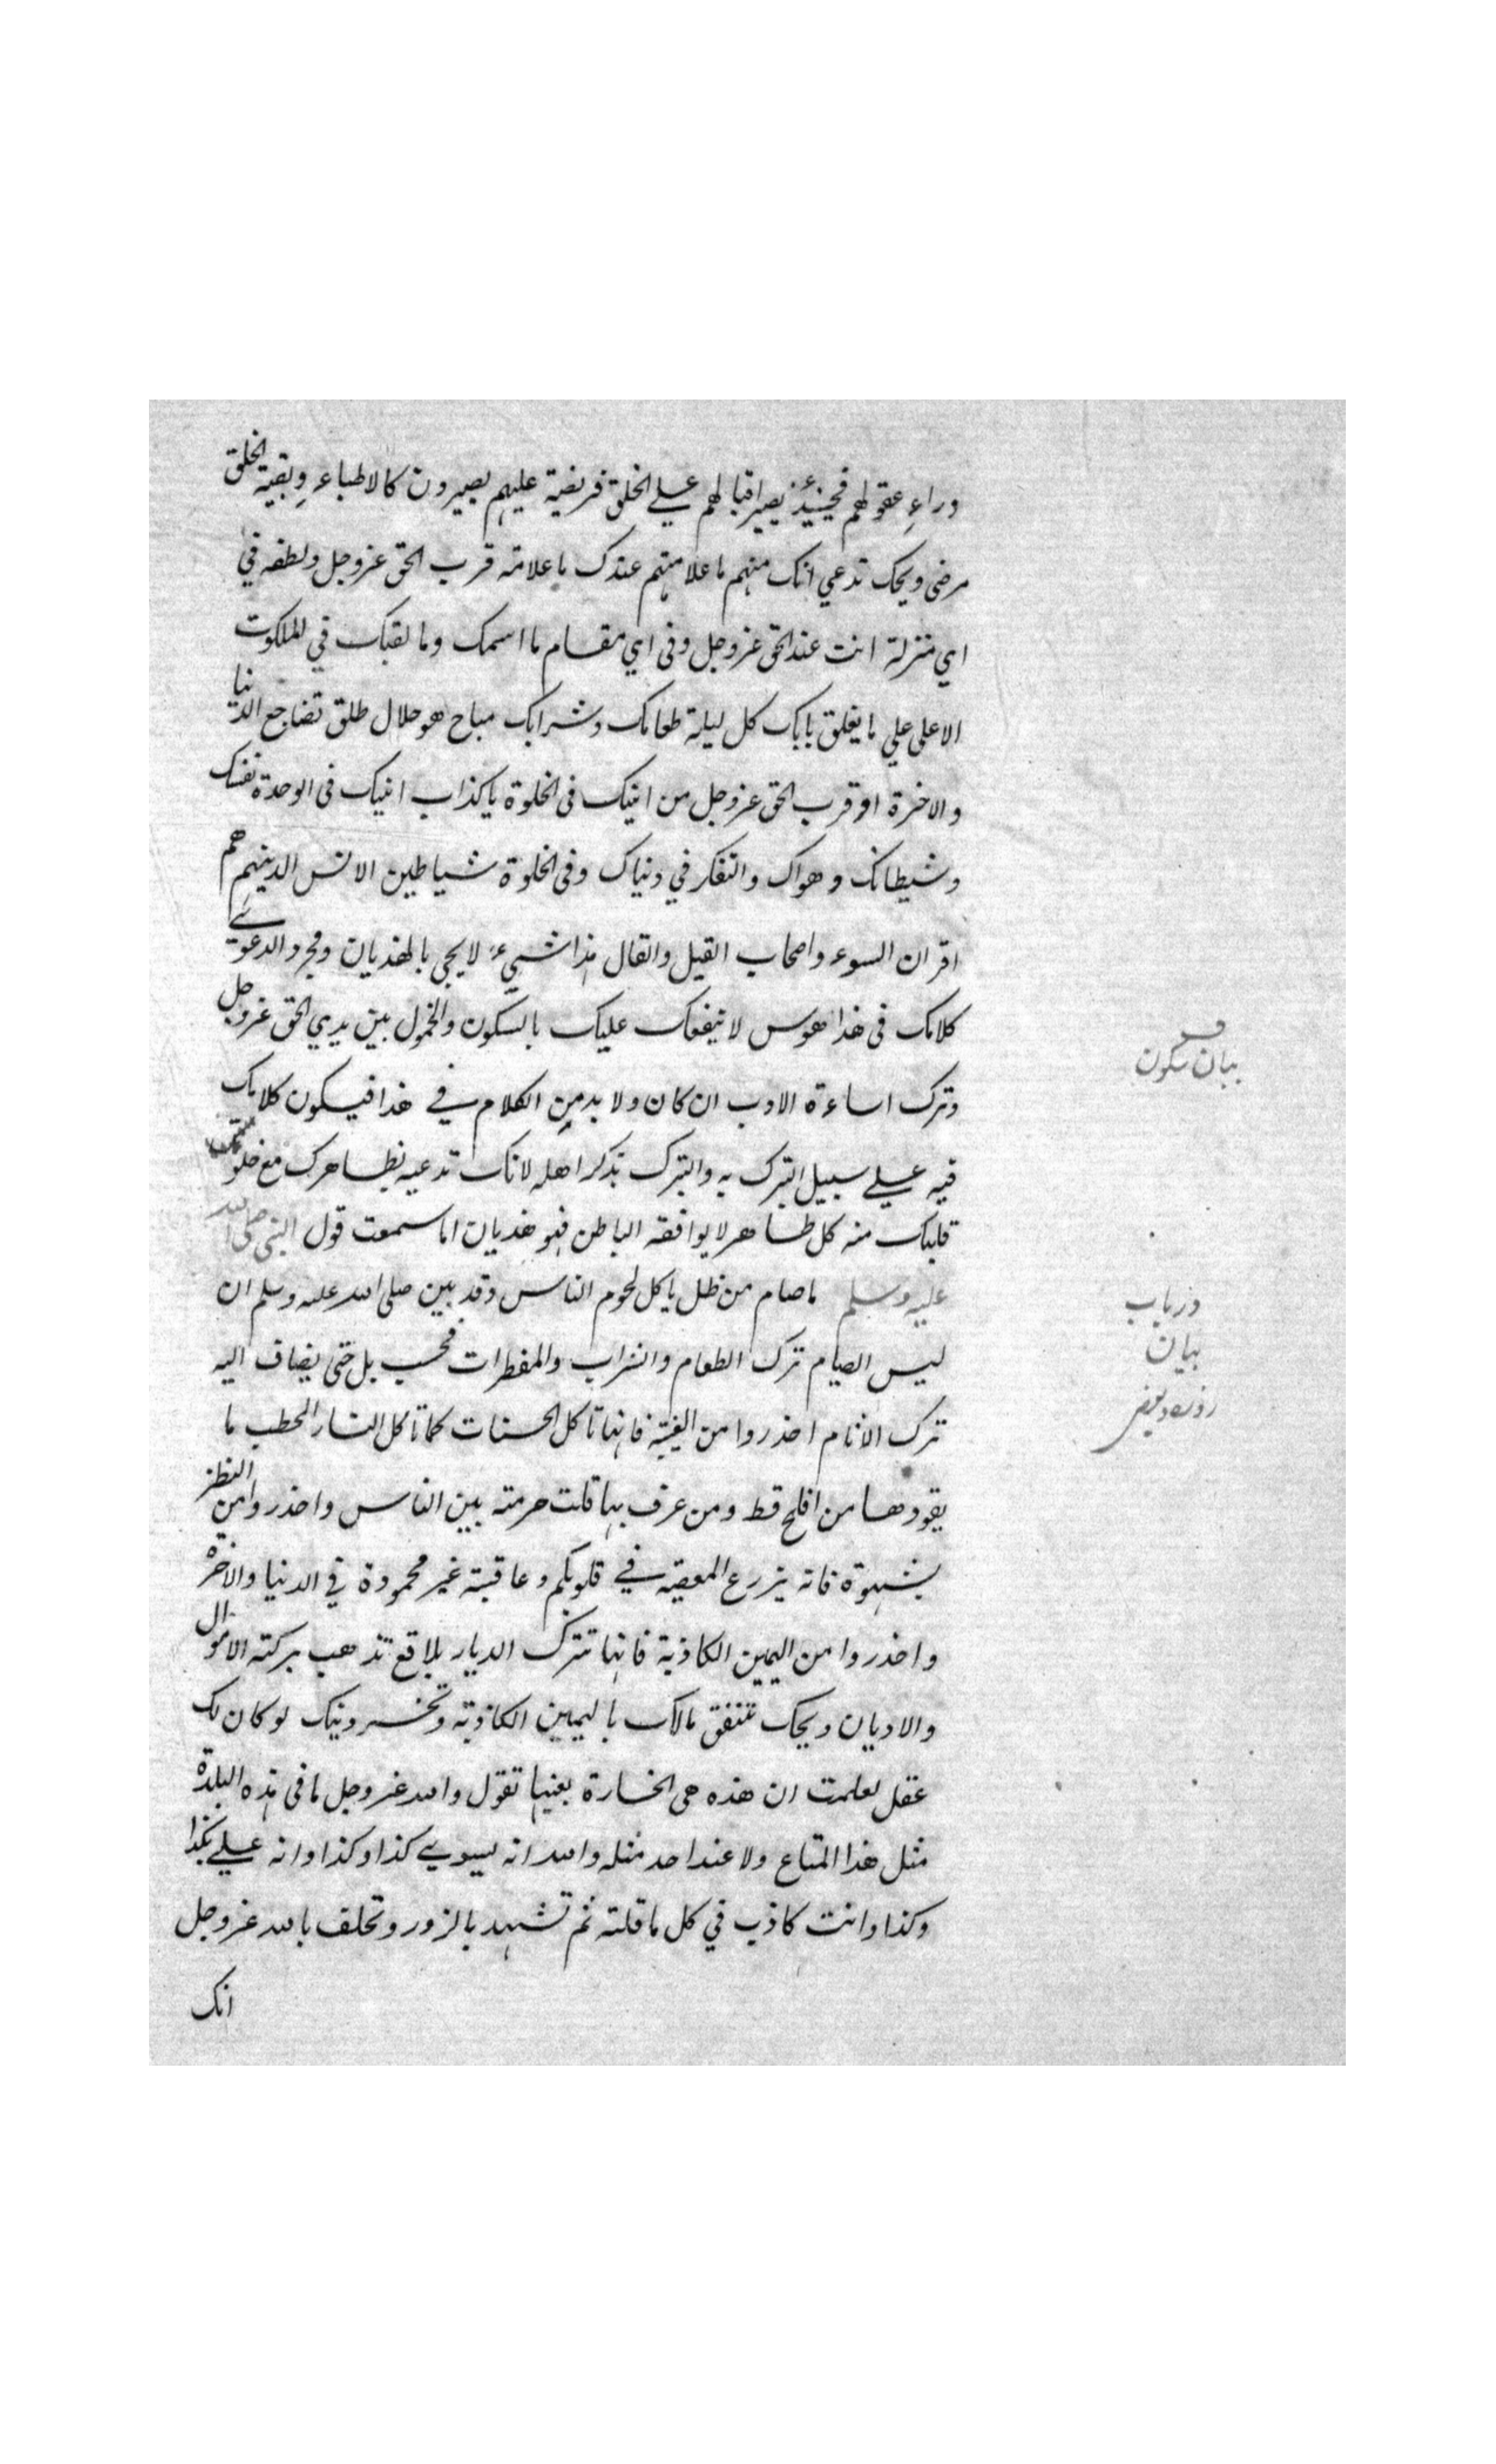 وراء عقولهم فحينئذ يصير اقبالهم علي الخلق فريضة عليهم يصيرون كالاطباء وبقية الخلق
مرضى ويحك تدعي انك منهم ما علامتهم عندك ما علامة قرب الحق عزوجل ولطفه في
اي منزلة انت عند الحق عزوجل وفى اي مقام ما اسمك وما لقبك في الملكوت
الاعلى علي ما يغلق بابك كل ليلة طعامك وشرابك مباح هو حلال طلق تضاجع الدنيا
والاخرة او قرب الحق عزوجل من انيك فى الخلوة يا كذاب انيك فى الوحدة نفسك
وشيطانك وهواك والتفكر في دنياك وفى الخلوة شياطين الانس الدينهم هم
اقران السوء واصحاب القيل والقال هذا شيء لا يجى بالهذيان ومجرد الدعوى
كلامك فى هذا هوس لا ينفعك عليك بالسكون والخمول بين يدي الحق عزوجل
وترك اساءة الادب ان كان ولا بد من الكلام في هذا فيكون كلامك
فيه علي سبيل التبرك به والتبرك بذكر اهله لانك تدعيه بظاهرك مع خلو
قلبك منه كل ظاهر لا يوافقه الباطن فهو هذيان اما سمعت قول النبى صلى الله
عليه وسلم ما صام من ظل ياكل لحوم الناس وقد بين صلى الله عليه وسلم ان
ليس الصيام ترك الطعام والشراب والمفطرات فحسب بل حتى يضاف اليه
ترك الاثام احذروا من الغيبة فانها تاكل الحسنات كما تاكل النار الحطب ما
يقودها من افلح قط ومن عرف بها قلت حرمته بين الناس واحذروا من النظر
بشهوة فانه يزرع المعصية في قلوبكم وعاقبته غير محمودة في الدنيا والاخرة
واحذروا من اليمين الكاذبة فانها تترك الديار بلاقع تذهب بركة الاموال
والاديان ويحك تنفق مالك باليمين الكاذبة وتخسر دينك لو كان لك
عقل لعلمت ان هذه هى الخسارة بعينها تقول والله عزوجل ما فى هذه البلدة
مثل هذا المتاع ولا عند احد مثله والله انه يسوي كذا وكذا وانه علي بكذا
وكذا وانت كاذب في كل ما قلته ثم تشهد بالزور وتحلف بالله عزوجل
انك
بيان سكون
درباب
بيان